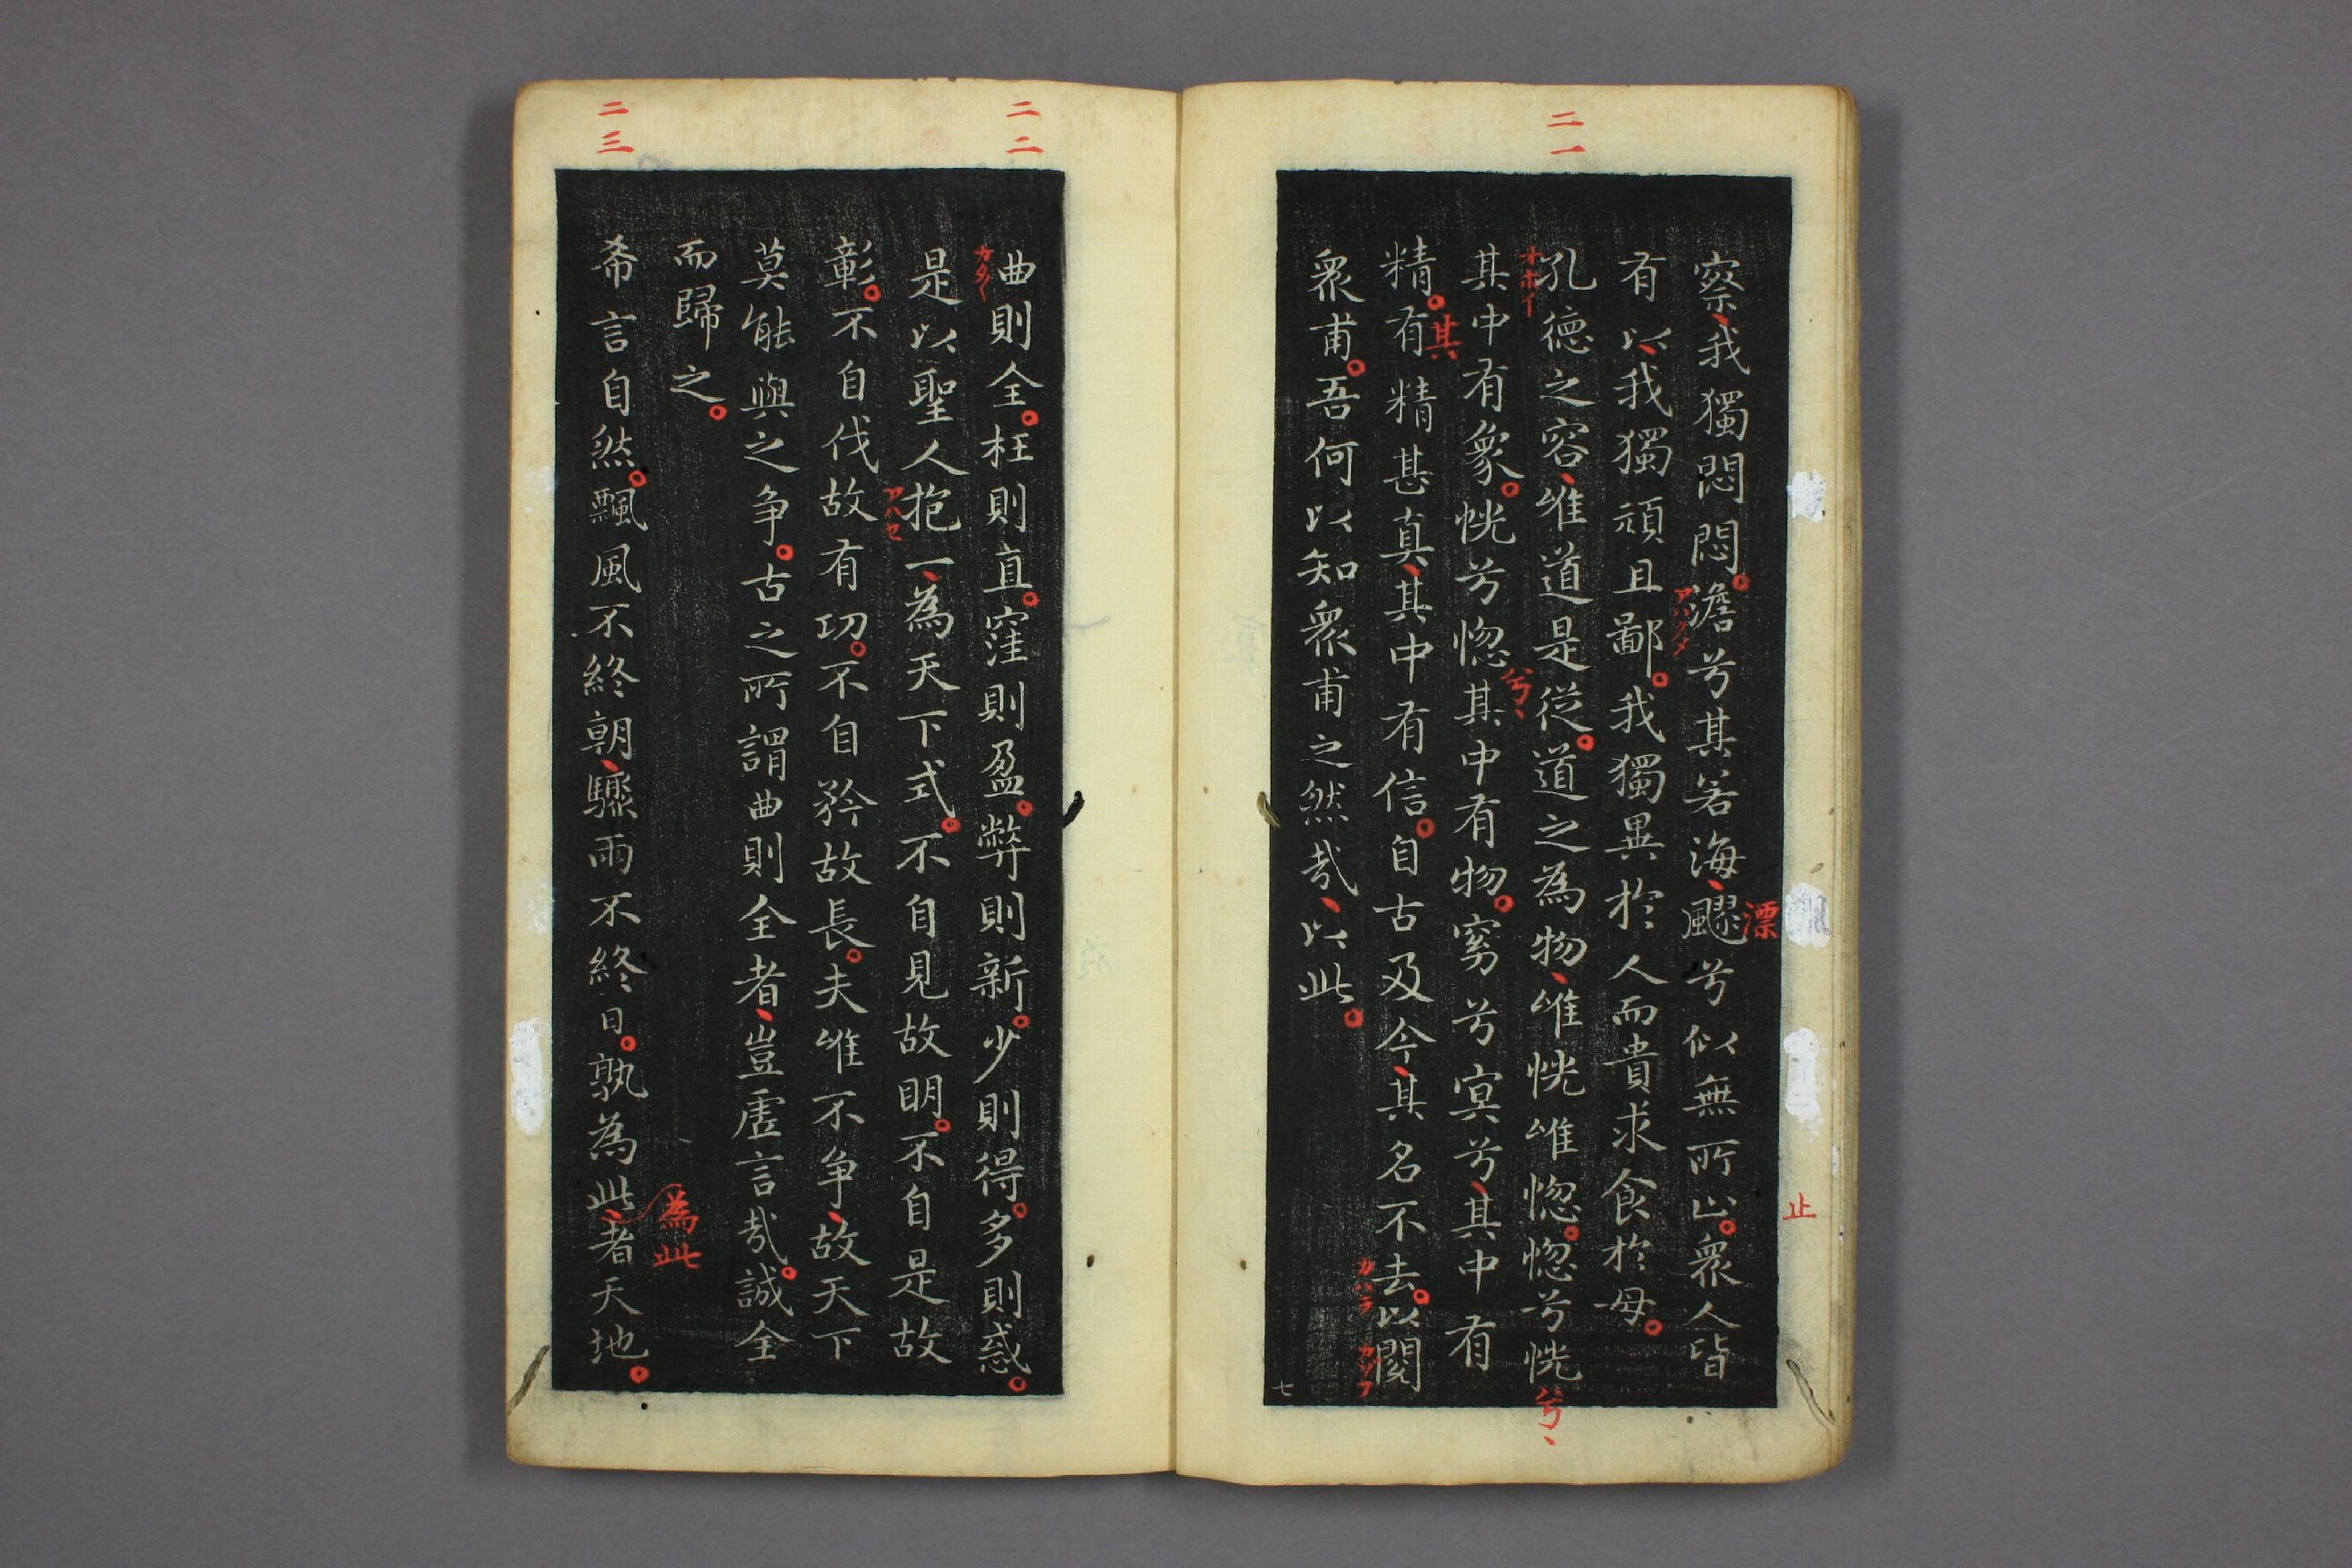 二一
察我獨悶悶澹兮其若海飂兮似無所止衆人皆
アハクタ
漂
止
有以我獨頑且鄙我獨異於人而貴求食於母
孔德之容唯道是從道之為物唯恍唯惚惚兮恍
オホイ
兮、
其中有象恍兮惚其中有物窈兮冥兮其中有
兮、
精有精甚真其中有信自古及今其名不去以閱
其
カハラ
衆甫吾何以知衆甫之然哉以此
七
二二
曲則全枉則直窪則盈弊則新少則得多則惑
カタク
是以聖人抱一為天下式不自見故明不自是故
アハセ
彰不自伐故有功不自矜故長夫唯不争故天下
莫能與之争古之所謂曲則全者豈虛言哉誠全
而歸之
二三
希言自然飄風不終朝驟雨不終日孰為此者天地
為此